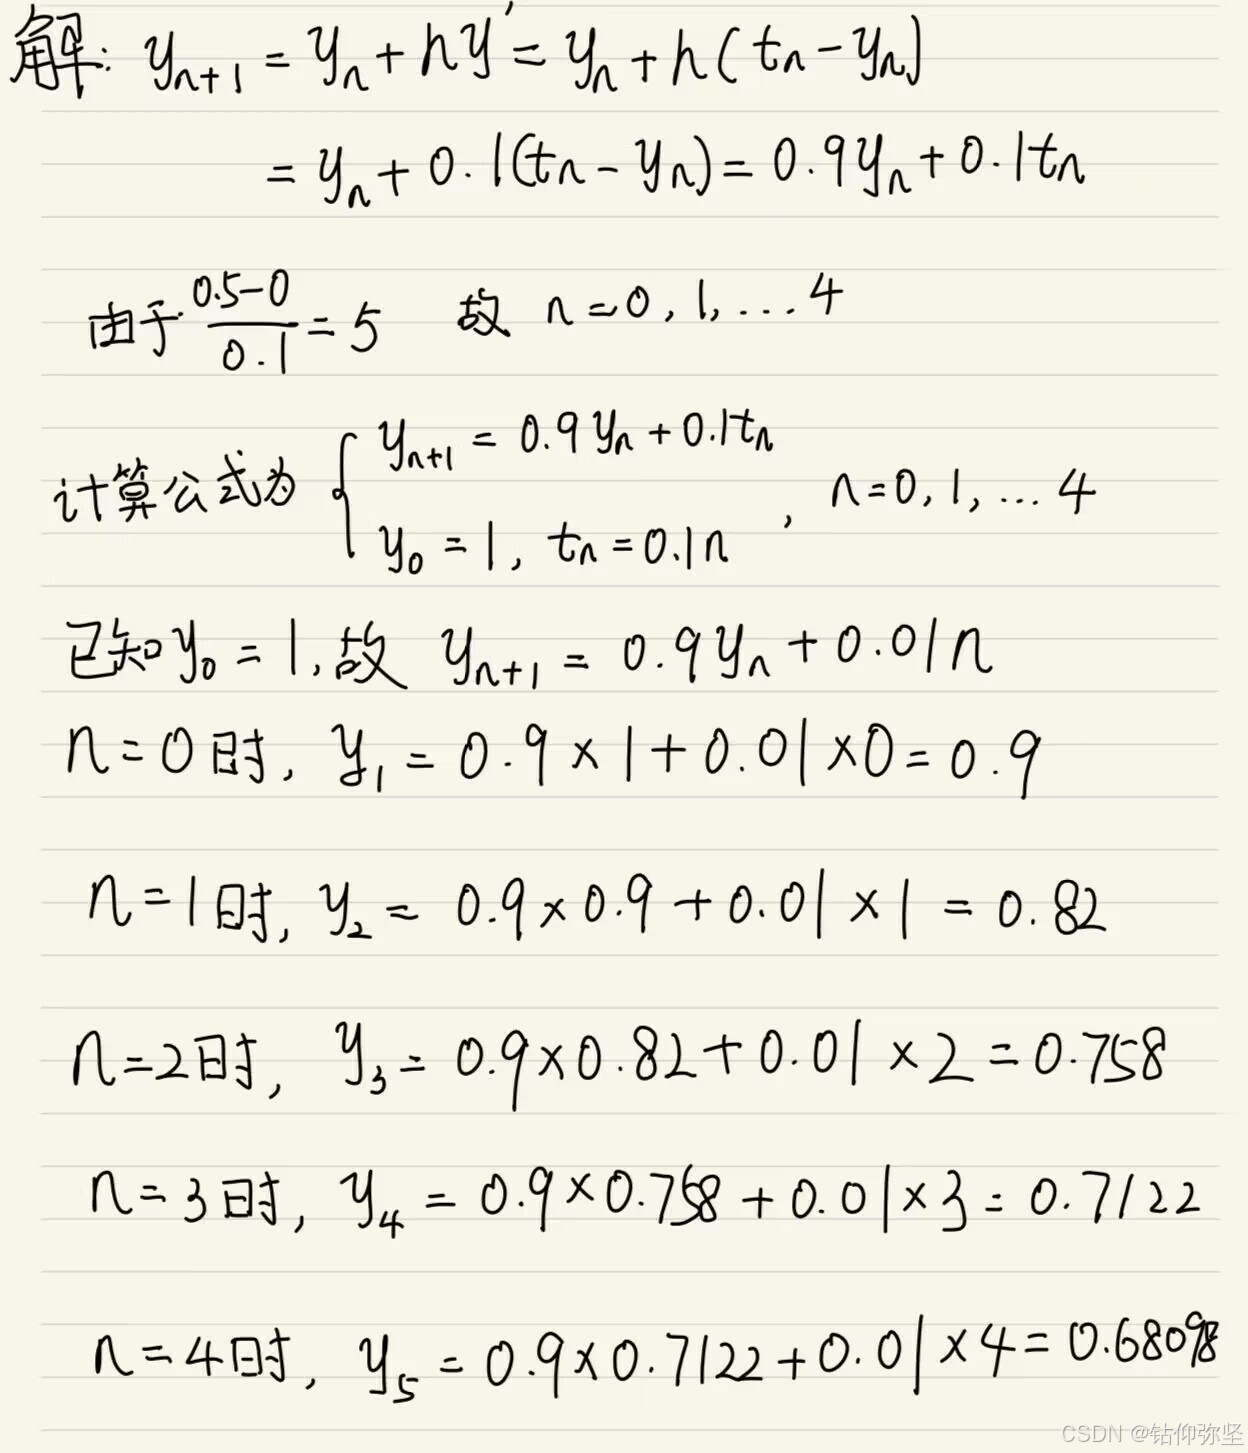 解: yₙ₊₁ = yₙ + hy' = yₙ + h(tₙ - yₙ)
= yₙ + 0.1(tₙ - yₙ) = 0.9yₙ + 0.1tₙ
由于 (0.5-0)/0.1 = 5 故 n=0, 1, ... 4
计算公式为 { yₙ₊₁ = 0.9yₙ + 0.1tₙ
y₀ = 1, tₙ = 0.1n , n=0, 1, ... 4
已知y₀ = 1, 故 yₙ₊₁ = 0.9yₙ + 0.01n
n=0时, y₁ = 0.9 × 1 + 0.01 × 0 = 0.9
n=1时, y₂ = 0.9 × 0.9 + 0.01 × 1 = 0.82
n=2时, y₃ = 0.9 × 0.82 + 0.01 × 2 = 0.758
n=3时, y₄ = 0.9 × 0.758 + 0.01 × 3 = 0.7122
n=4时, y₅ = 0.9 × 0.7122 + 0.01 × 4 = 0.68098
CSDN @钻仰弥坚